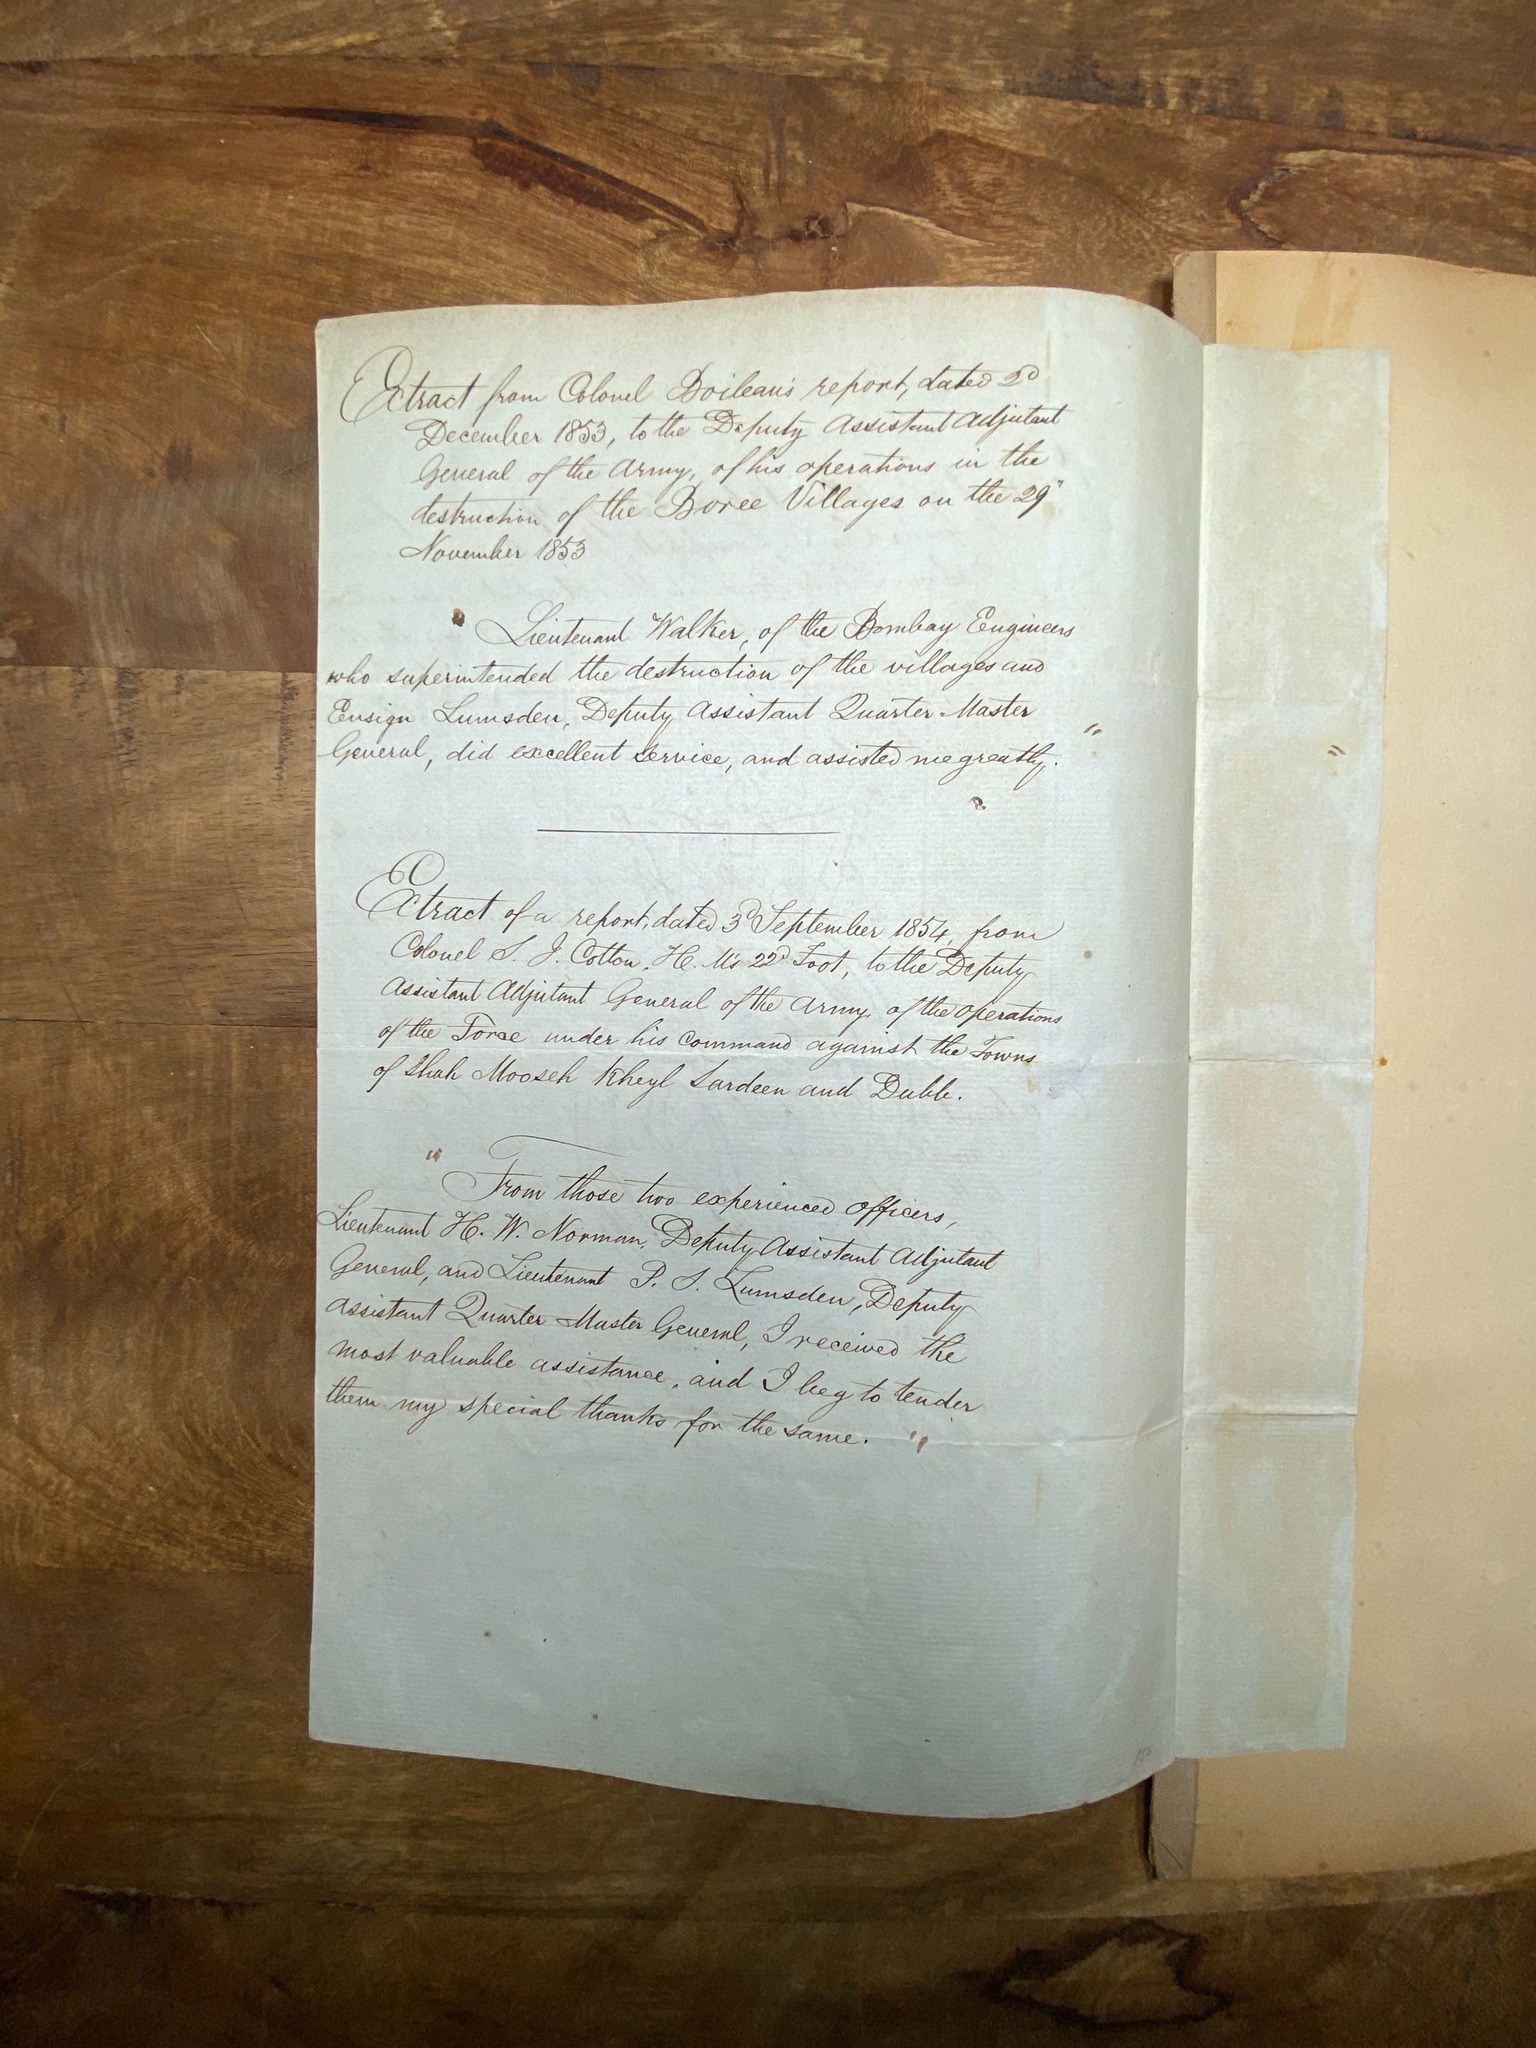 Extract from Colonel Boileau's report, dated 2d
December 1853, to the Deputy Assistant Adjutant
General of the Army, of his operations in the
destruction of the Boree Villages on the 29"
November 1853
" Lieutenant Walker, of the Bombay Engineers
who superintended the destruction of the villages and
Ensign Lumsden, Deputy Assistant Quarter Master
General, did excellent service, and assisted me greatly. "
Extract of a report, dated 3d September 1854, from
Colonel S. J. Cotton, H. M's 22d Foot, to the Deputy
Assistant Adjutant General of the Army, of the operations
of the Force under his command against the Towns
of Shah Mooseh Kheyl Sardeen and Dabb.
" From those two experienced officers,
Lieutenant H. W. Norman, Deputy Assistant Adjutant
General, and Lieutenant P. S. Lumsden, Deputy
Assistant Quarter Master General, I received the
most valuable assistance, and I beg to tender
them my special thanks for the same. "